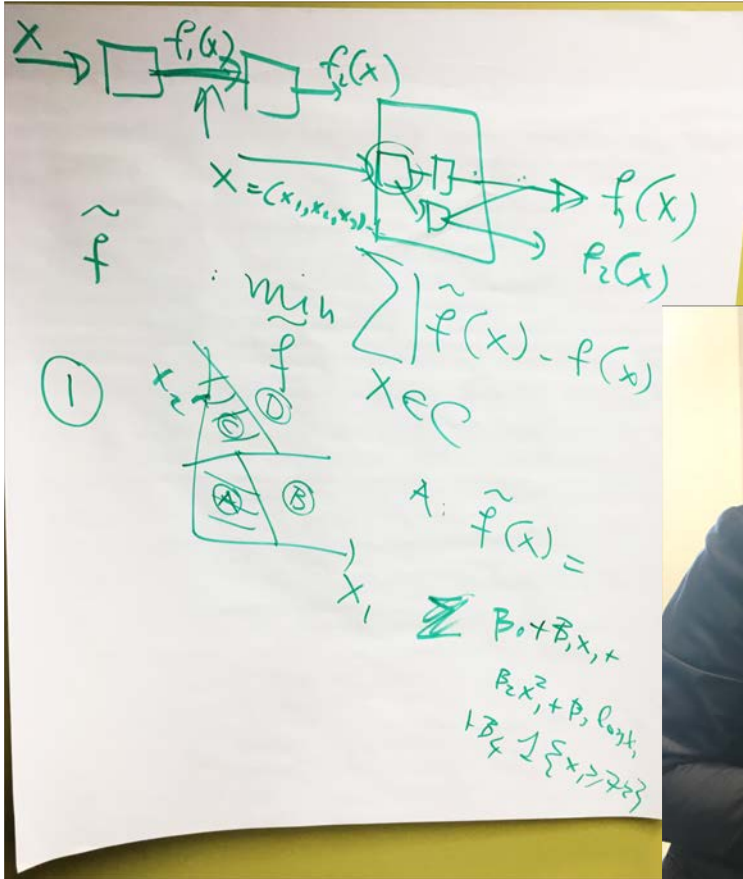 X f₁(x) f₂(x)
X = (x₁, x₂, x₃)
f₁(x)
f₂(x)
f̃ : min Σ | f̃(x) - f(x)
f̃ x∈C
①
x₂
Ⓒ Ⓓ
Ⓐ Ⓑ
x₁
A: f̃(x) =
β₀ + β₁x₁ +
β₂x₁² + β₃ log x₁
+ β₄ 1{x₁ ≥ 72}